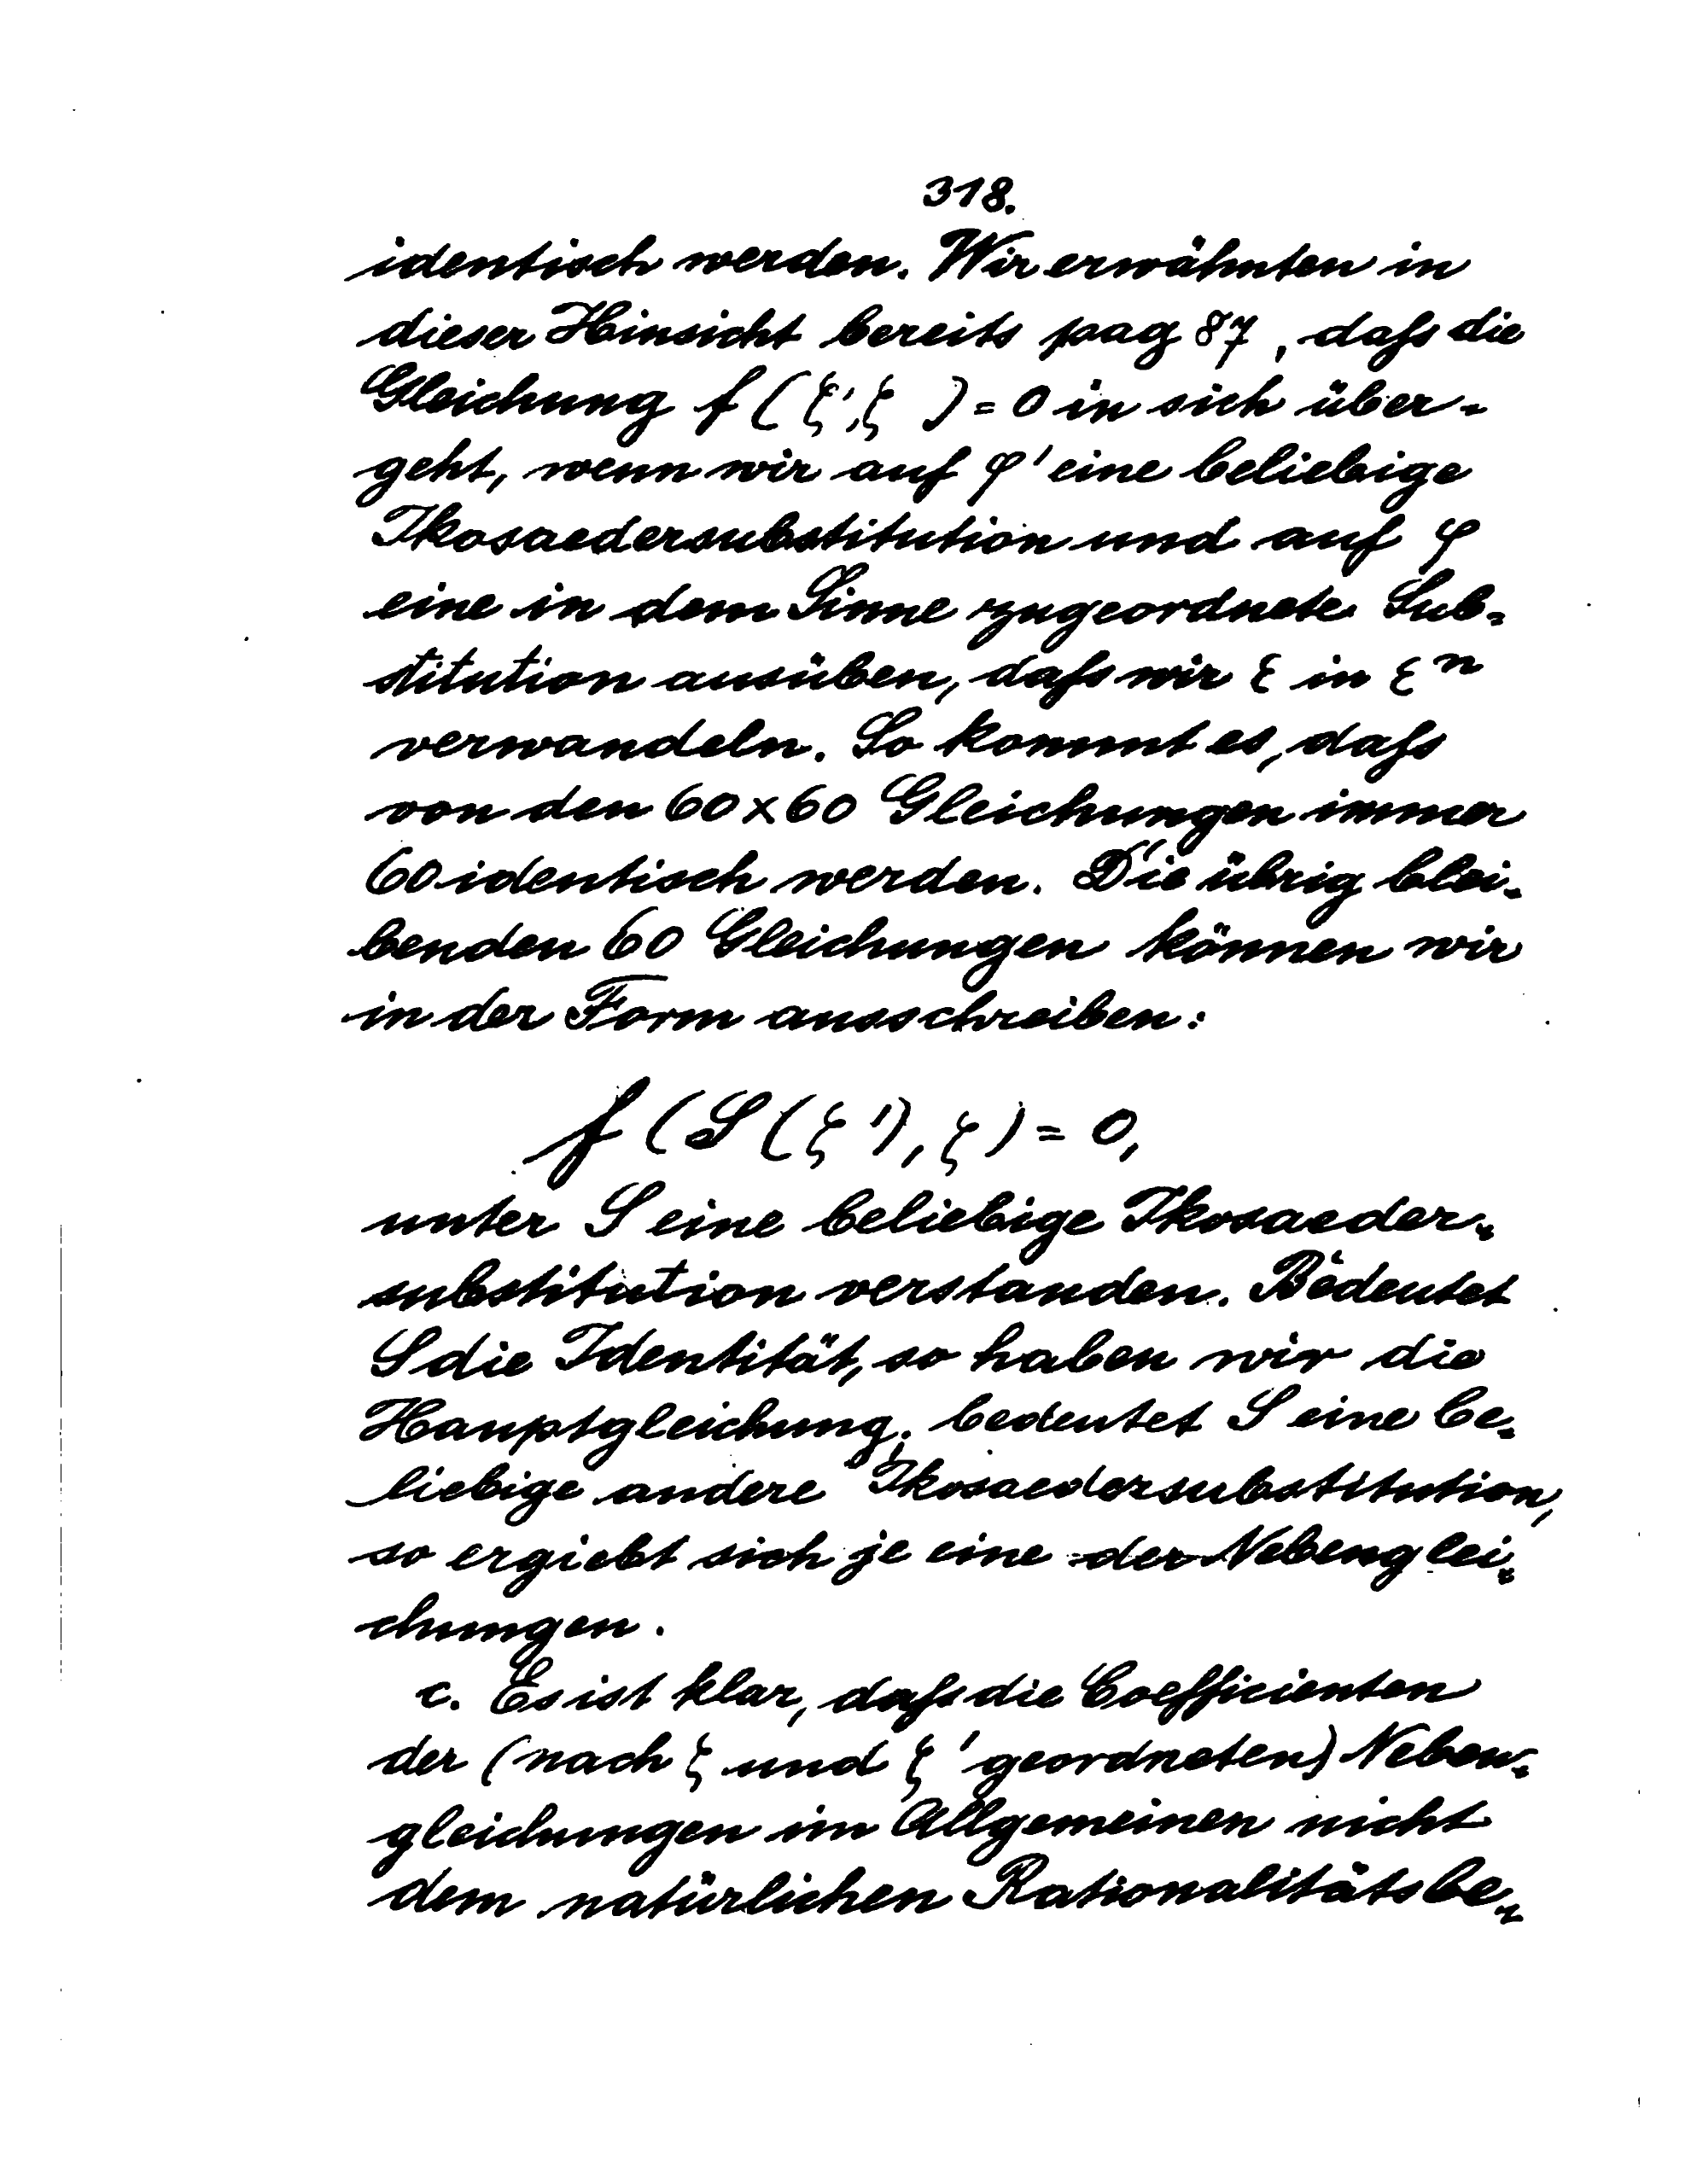 318.
identisch werden. Wir erwähnten in
dieser Hinsicht bereits pag 87, daſs die
Gleichung f(ζ',ζ) = 0 in sich über-
geht, wenn wir auf φ' eine beliebige
Ikosaedersubstitution und auf φ
eine in dem Sinne zugeordnete Sub-
stitution ausüben, daſs wir ε in ε^n
verwandeln. So kommt es, daſs
von den 60×60 Gleichungen immer
60 identisch werden. Die übrig blei-
benden 60 Gleichungen können wir
in der Form ausschreiben:
f(S(ζ'), ζ) = 0,
unter S eine beliebige Ikosaeder-
substitution verstanden. Bedeutet
S die Identität, so haben wir die
Hauptgleichung; bedeutet S eine be-
liebige andere Ikosaedersubstitution,
so ergiebt sich je eine der Nebenglei-
chungen.
c. Es ist klar, daſs die Coefficienten
der (nach ζ und ζ' geordneten) Neben-
gleichungen im Allgemeinen nicht
dem natürlichen Rationalitätsbe-